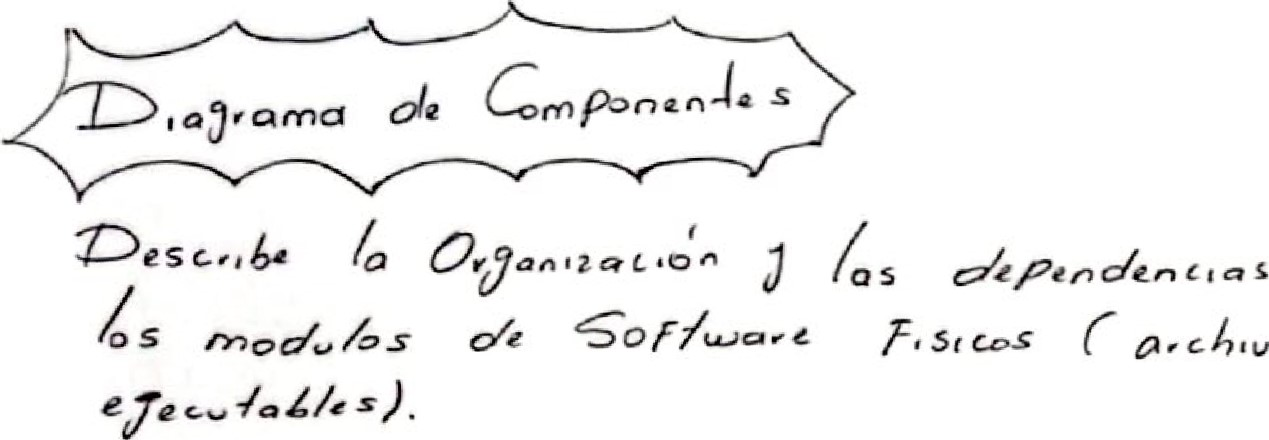 Diagrama de Componentes
Describe la Organización y las dependencias
los modulos de Software Fisicos (archiv
ejecutables).